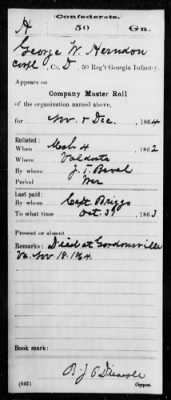 Confederate.
H 50 Ga.
George W. Herndon
Corpl, Co. D, 50 Reg't Georgia Infantry.
Appears on
Company Muster Roll
of the organization named above,
for Nov. & Dec., 1864
Enlisted:
When Mch 4 1862
Where Valdosta
By whom
Period War
Last paid:
By whom Capt Briggs
To what time Oct. 31 1863
Present or absent
Remarks: Died at Gordonsville
Va. Nov. 18. 1864.
Book mark:
(642) Copyist.